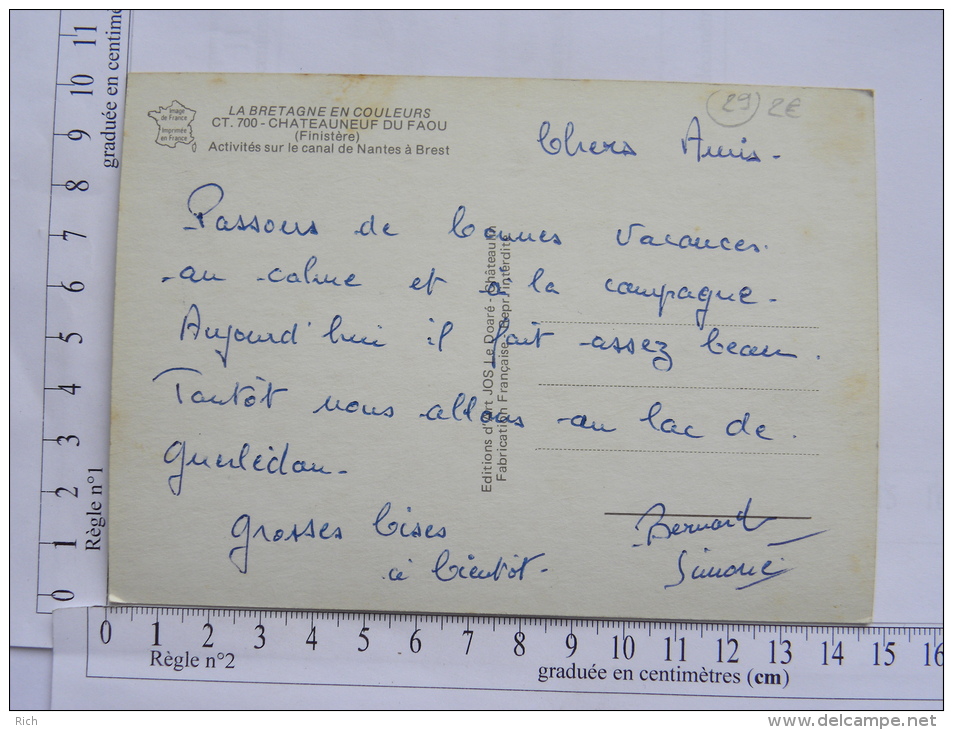 Image
de France
Imprimée
en France
LA BRETAGNE EN COULEURS
CT. 700 - CHATEAUNEUF DU FAOU
(Finistère)
Activités sur le canal de Nantes à Brest
29 2€
Chers Amis -
Passons de bonnes vacances.
au calme et à la campagne -
Aujourd'hui il fait assez beau.
Tantôt nous allons au lac de.
Guerlédan -
Grosses bises
à bientôt -
Bernard
Simone
Editions d'Art JOS Le Doaré - Châteaulin
Fabrication Française - Repr. interdite
0 1 2 3 4 5 6 7 8 9 10 11
Règle n°1
graduée en centimè
0 1 2 3 4 5 6 7 8 9 10 11 12 13 14 15 16
Règle n°2
graduée en centimètres (cm)
Rich
www.delcampe.net